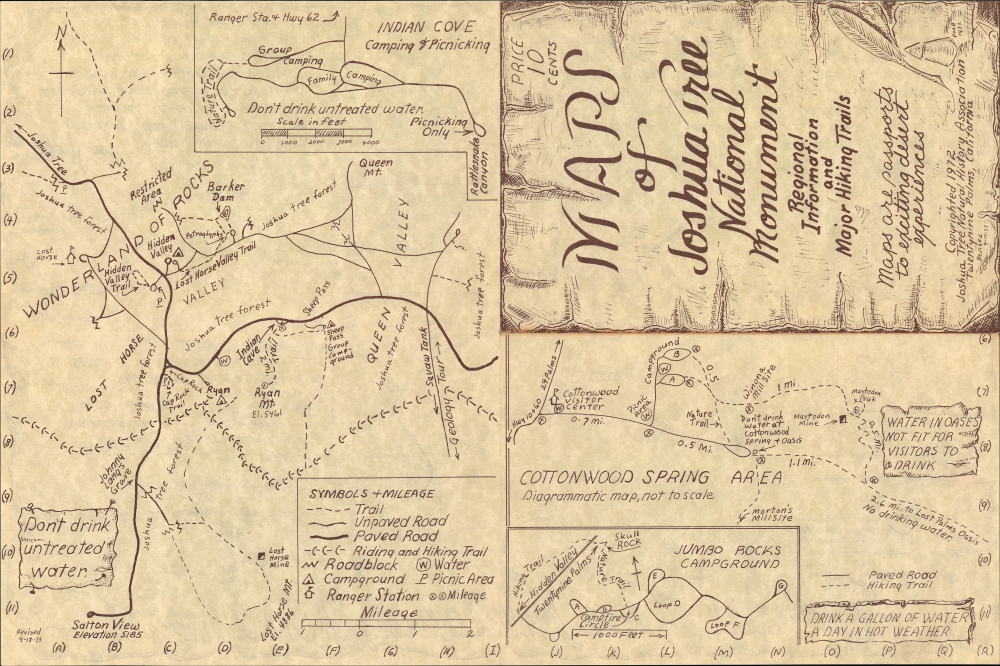 Ranger Sta. & Hwy 62
INDIAN COVE
Camping & Picnicking
Group
Camping
Family
Camping
Nature Trail
Don't drink untreated water.
Scale in feet
0 1000 2000 3000 4000
Picnicking
Only
Rattlesnake
Canyon
N
(1)
(2)
(3)
(4)
(5)
(6)
(7)
(8)
(9)
(10)
(11)
Joshua Tree
Joshua tree forest
P
Restricted
Area
WONDERLAND OF ROCKS
Barker
Dam
Petroglyphs
Joshua tree forest
Queen
Mt.
LOST
HORSE
Hidden
Valley
Hidden
Valley
Trail
P
Lost Horse Valley Trail
LOST HORSE VALLEY
QUEEN VALLEY
Joshua tree forest
Joshua tree forest
Sheep Pass
Sheep
Pass
Group
Camp-
ground
W
Indian
Cave
Trail
2 mi.
Ryan
Mt.
El. 5461
Joshua tree forest
Joshua tree forest
Squaw Tank
Geology Tour
Cap Rock
Cap Rock
Trail
Ryan
Johnny
Lang's
Grave
Joshua tree forest
Don't drink
untreated
water
Lost
Horse
Mine
Lost Horse Mt.
Salton View
Elevation 5185
Revised
9-18-73
SYMBOLS + MILEAGE
Trail
Unpaved Road
Paved Road
Riding and Hiking Trail
Roadblock W Water
Campground P Picnic Area
Ranger Station Mileage
Mileage
0 1 2
(A) (B) (C) (D) (E) (F) (G) (H) (I)
PRICE
10
CENTS
MAPS
of
Joshua Tree
National
Monument
Regional
Information
and
Major Hiking Trails
Maps are passports
to exciting desert
experiences
Copyrighted 1972
Joshua Tree Natural History Association
Twentynine Palms, California
Hwy 10+60
29 Palms
Cottonwood
Visitor
Center
W
0.7 mi.
Picnic
Area
W
Campground
B
W
A
0.5
Nature
Trail
0.5 Mi.
Winona
Mill Site
1 mi.
Don't drink
Water at
Cottonwood
Spring + Oasis
Mastodon
Mine
Mastodon
Peak
0.5 Mi.
1.1 mi.
WATER IN OASES
NOT FIT FOR
VISITORS TO
DRINK
COTTONWOOD SPRING AREA
Diagrammatic map, not to scale
Morton's
Millsite
2.6 mi. to Lost Palms Oasis
No drinking water
(6)
(7)
(8)
(9)
(10)
(11)
Hiking Trail
Hidden Valley
Twentynine Palms
Skull
ROCK
Nature Trail
JUMBO ROCKS
CAMPGROUND
A
B
C
Campfire
Circle
E
Loop D
Loop F
G
1000 Feet
Paved Road
Hiking Trail
DRINK A GALLON OF WATER
A DAY IN HOT WEATHER
(J) (K) (L) (M) (N) (O) (P) (Q) (R)